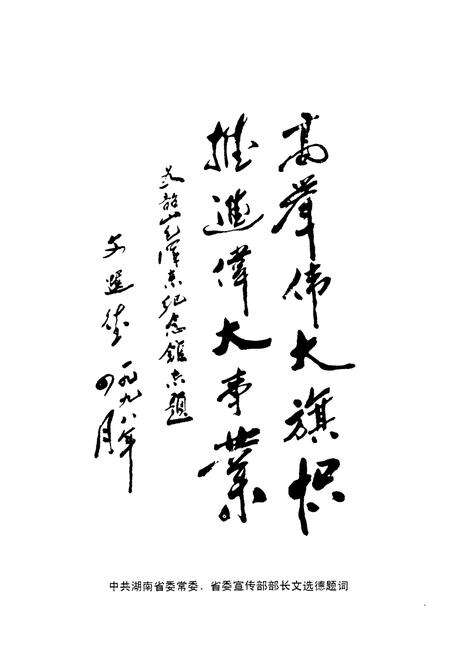 高举伟大旗帜
推進偉大事業
为韶山毛泽东纪念馆志题
文选德
一九九八年
四月
中共湖南省委常委、省委宣传部部长文选德题词